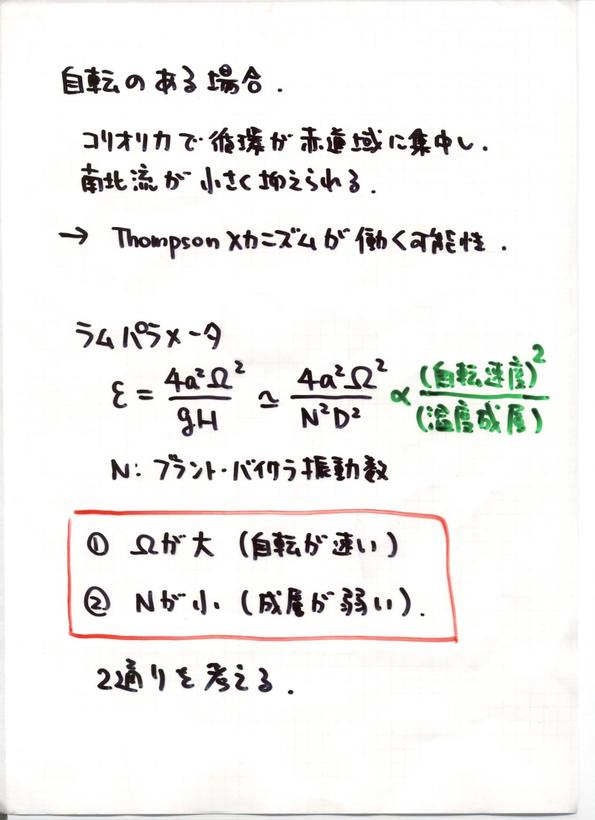 自転のある場合.
コリオリ力で循環が赤道域に集中し.
南北流が小さく抑えられる.
→ Thompsonメカニズムが働く可能性.
ラムパラメータ
ε = 4a²Ω²/gH ≃ 4a²Ω²/N²D² ∝ (自転速度)²/(温度成層)
N: ブラント・バイサラ振動数
① Ωが大 (自転が速い)
② Nが小 (成層が弱い).
2通りを考える.